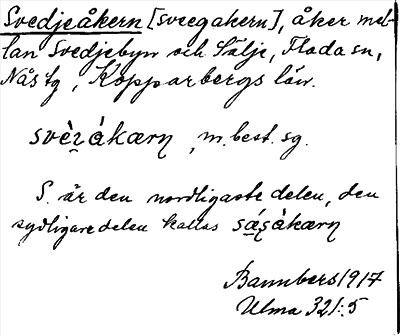 Svedjeåkern [svregakern], åker mel-
lan Svedjebyn och Sälje, Floda sn,
Nås tg, Kopparbergs län.
svèʒ̣àkærn, m. best. sg.
S. är den nordligaste delen, den
sydligare delen kallas
Bannbers 1917
Ulma 321:5